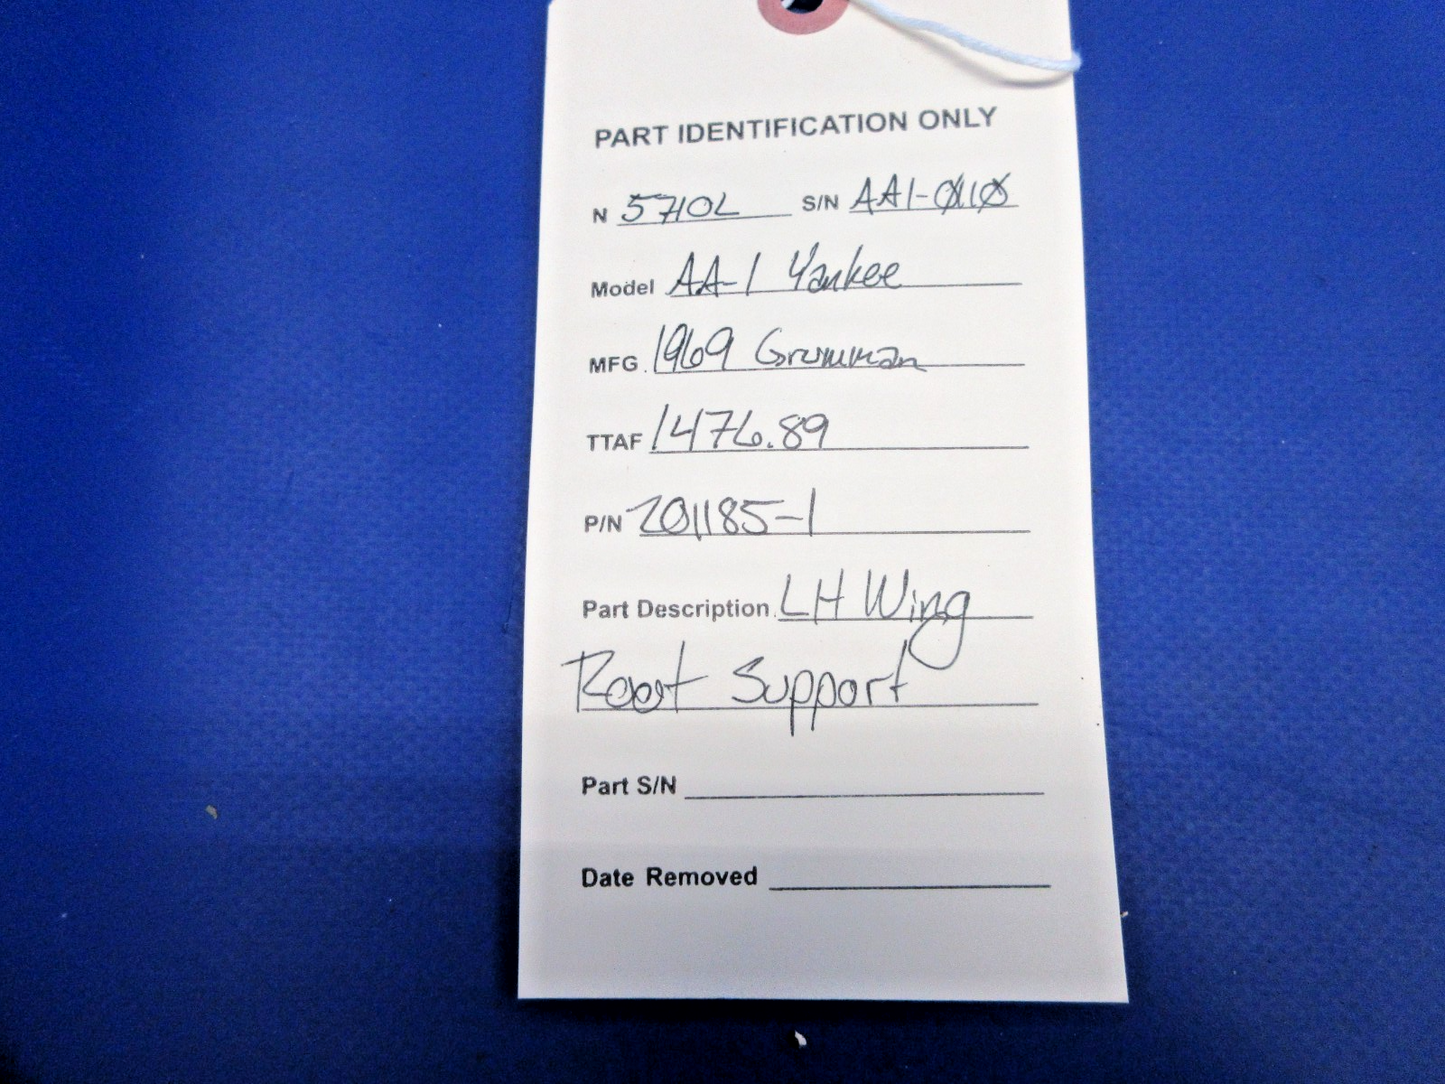 PART IDENTIFICATION ONLY
N 5710L S/N AA1-0110
Model AA-1 Yankee
MFG. 1969 Grumman
TTAF 1476.89
P/N 201185-1
Part Description. LH Wing
Root Support
Part S/N
Date Removed